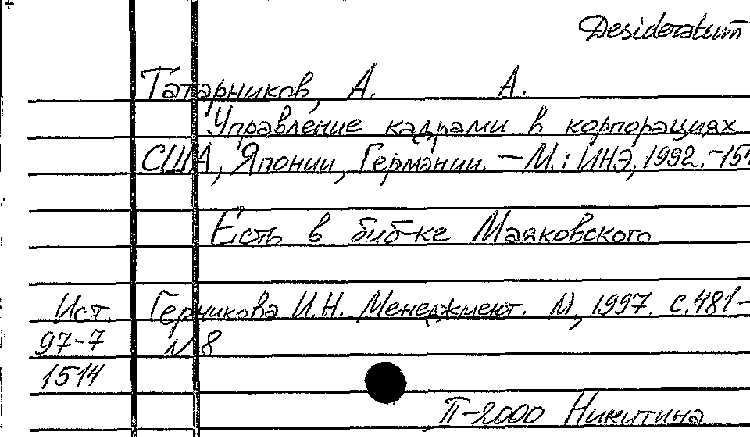 Desideratum
Татарников, А. А.
Управление кадрами в корпорациях
США, Японии, Германии. – М.: ИНЭ, 1992. – 151
Есть в биб-ке Маяковского
Ист. Герчикова И.Н. Менеджмент. М, 1997. с. 481-
97-7 N 8
1514
П-2000 Никитина